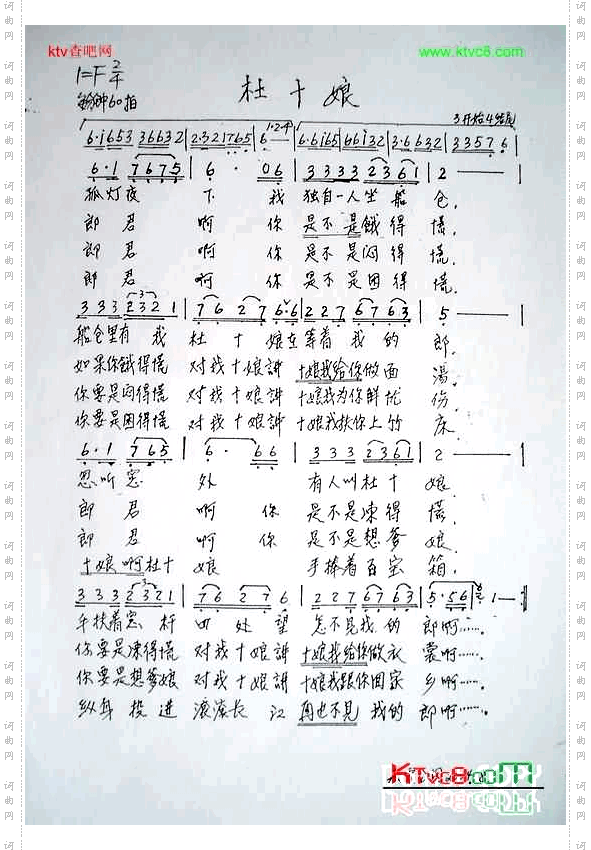 ktv查吧网
www.ktvc8.com
1=F 2/4
每分钟60拍
杜十娘
3开始4结尾
1·2·4·
6·i653 36632 | 2·321765 | 6 | 6·6i65 66i32 | 3·6632 | 33576 |
6·1 7675 | 6· 06 | 3333 2361 | 2 — |
孤灯夜 下 我 独自一人坐船 仓,
郎君 啊 你 是不是饿得 慌,
郎君 啊 你 是不是闷得 慌,
郎君 啊 你 是不是困得 慌,
333 2321 | 76 27 66 | 227 6763 | 5 — |
船仓里有我 杜十娘在等着我的 郎,
如果你饿得慌 对我十娘讲 十娘我给你做面 汤,
你要是闷得慌 对我十娘讲 十娘我为你解忧 伤,
你要是困得慌 对我十娘讲 十娘我扶你上竹 床,
6·1 765 | 6· 66 | 333 2361 | 2 — |
忽听窗 外 有人叫杜十 娘
郎君 啊 你 是不是冻得 慌,
郎君 啊 你 是不是想爹 娘,
十娘啊杜十 娘 手捧着百宝 箱,
333 2321 | 76 27 6 | 227 6763 | 5·56 1— :‖
手扶着窗杆 四处望 怎不见我的 郎啊……
你要是冻得慌 对我十娘讲 十娘我给你做衣 裳啊……
你要是想爹娘 对我十娘讲 十娘我跟你回家 乡啊……
纵身投进 滚滚长江 再也不见我的 郎啊……
KTvc8.com
词曲网